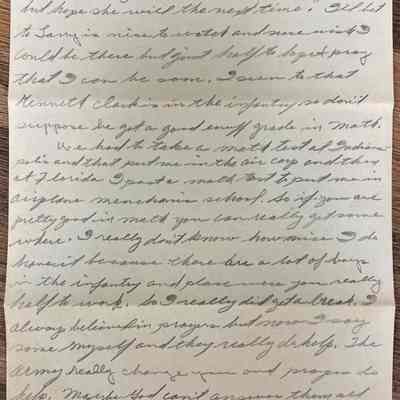 but hope she will the next time." I'll bet
to Larry is nice to watch and sure wish I
could be there but just half to hope & pray
that I can be soon. I seen to that
Kennett Clark is in the infantry so don't
suppose he got a good enuff grade in math.
We had to take a math test at Indiana
polis and that put me in the air corp and then
at Florida I past a math test to put me in
airplane menchanic school. So if you are
pretty good in math you can really get some
where. I really don't know how nice I do
have it because there are a lot of boys
in the infantry and places were you really
half to work. So I really did get a break. I
always believed in prayers but now I say
some myself and they really do help. The
army really change you and prayers do
help. Maybe God can't answer them all